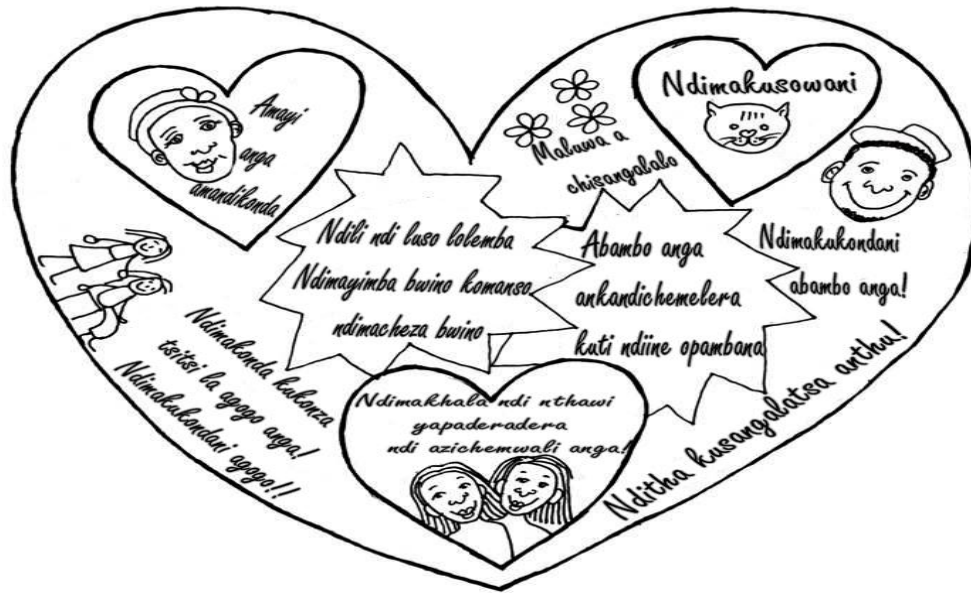 Amayi
anga
amandikonda
Maluwa a
chisangalalo
Ndimakusowani
Ndili ndi luso lolemba
Ndimayimba bwino komanso
ndimacheza bwino
Abambo anga
ankandichemelera
kuti ndiine opambana
Ndimakukondani
abambo anga!
Ndimakonda kukonza
tsitsi la agogo anga!
Ndimakukondani agogo!!
Ndimakhala ndi nthawi
yapaderadera
ndi azichemwali anga!
Nditha kusangalatsa anthu!